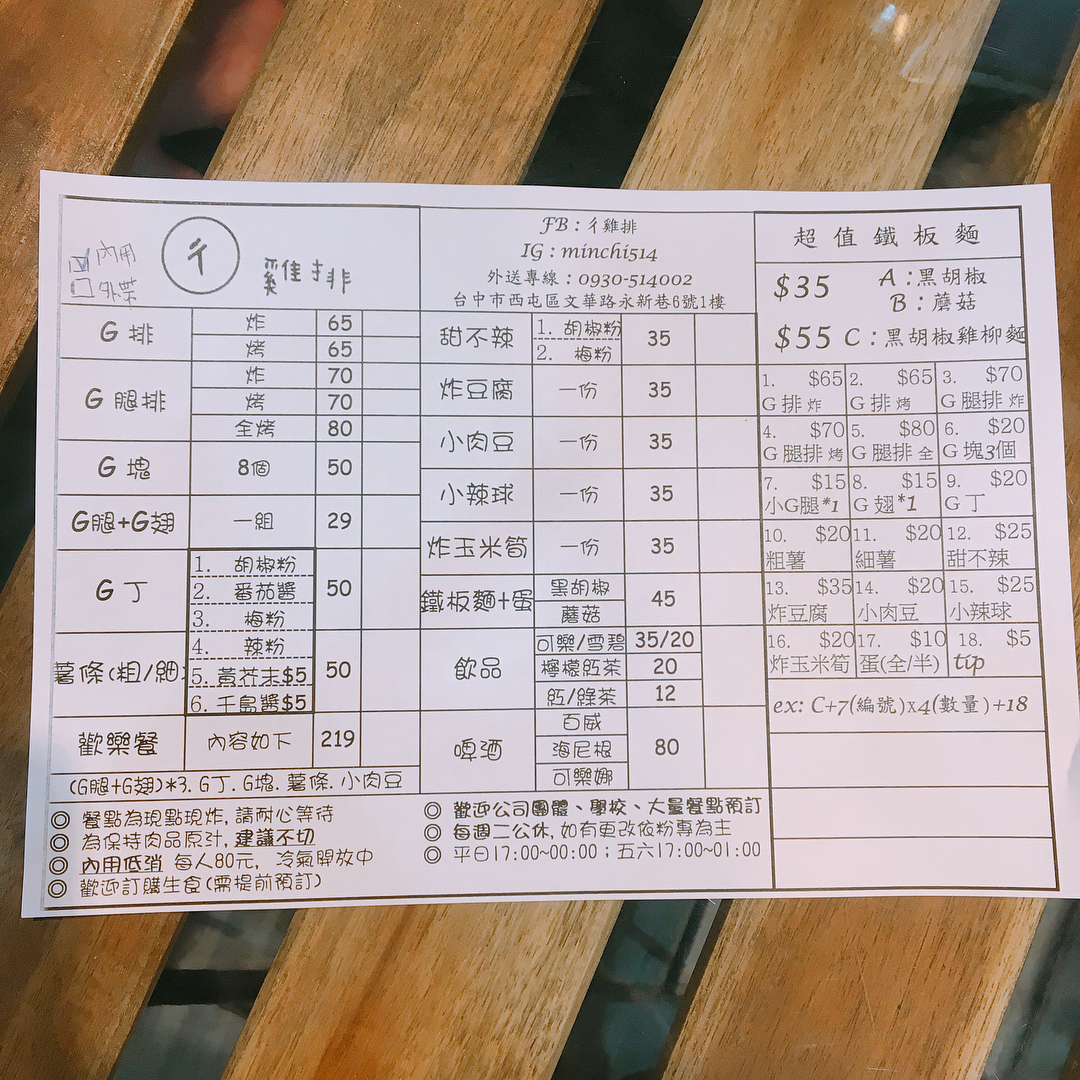 內用
外帶
ㄔ 雞排
G 排 炸 65
烤 65
G 腿排 炸 70
烤 70
全烤 80
G 塊 8個 50
G腿+G翅 一組 29
G 丁 50
1. 胡椒粉
2. 番茄醬
3. 梅粉
4. 辣粉
5. 黃芥末$5
6. 千島醬$5
薯條(粗/細) 50
歡樂餐 內容如下 219
(G腿+G翅)*3. G丁. G塊. 薯條. 小肉豆
FB : ㄔ雞排
IG : minchi514
外送專線 : 0930-514002
台中市西屯區文華路永新巷6號1樓
甜不辣 1. 胡椒粉 35
2. 梅粉
炸豆腐 一份 35
小肉豆 一份 35
小辣球 一份 35
炸玉米筍 一份 35
鐵板麵+蛋 黑胡椒 45
蘑菇
飲品 可樂/雪碧 35/20
檸檬紅茶 20
紅/綠茶 12
啤酒 百威 80
海尼根
可樂娜
超值鐵板麵
$35 A : 黑胡椒
B : 蘑菇
$55 C : 黑胡椒雞柳麵
1. $65 2. $65 3. $70
G 排 炸 G 排 烤 G 腿排 炸
4. $70 5. $80 6. $20
G 腿排 烤 G 腿排 全 G 塊3個
7. $15 8. $15 9. $20
小G腿*1 G 翅*1 G 丁
10. $20 11. $20 12. $25
粗薯 細薯 甜不辣
13. $35 14. $20 15. $25
炸豆腐 小肉豆 小辣球
16. $20 17. $10 18. $5
炸玉米筍 蛋(全/半) tip
ex: C+7(編號)x4(數量)+18
◎ 餐點為現點現炸, 請耐心等待
◎ 為保持肉品原汁, 建議不切
◎ 內用低消 每人80元, 冷氣開放中
◎ 歡迎訂購生食(需提前預訂)
◎ 歡迎公司團體、學校、大量餐點預訂
◎ 每週二公休, 如有更改依粉專為主
◎ 平日17:00~00:00；五六17:00~01:00